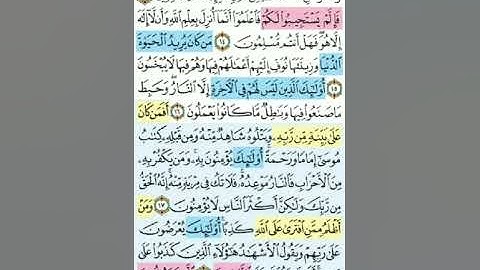 فَإِلَّمْ يَسْتَجِيبُوا۟ لَكُمْ فَٱعْلَمُوٓا۟ أَنَّمَآ أُنزِلَ بِعِلْمِ ٱللَّهِ وَأَن لَّآ إِلَٰهَ
إِلَّا هُوَ ۖ فَهَلْ أَنتُم مُّسْلِمُونَ ١٤ مَن كَانَ يُرِيدُ ٱلْحَيَوٰةَ
ٱلدُّنْيَا وَزِينَتَهَا نُوَفِّ إِلَيْهِمْ أَعْمَٰلَهُمْ فِيهَا وَهُمْ فِيهَا لَا يُبْخَسُونَ
١٥ أُو۟لَٰٓئِكَ ٱلَّذِينَ لَيْسَ لَهُمْ فِى ٱلْءَاخِرَةِ إِلَّا ٱلنَّارُ ۖ وَحَبِطَ
مَا صَنَعُوا۟ فِيهَا وَبَٰطِلٌ مَّا كَانُوا۟ يَعْمَلُونَ ١٦ أَفَمَن كَانَ
عَلَىٰ بَيِّنَةٍ مِّن رَّبِّهِۦ وَيَتْلُوهُ شَاهِدٌ مِّنْهُ وَمِن قَبْلِهِۦ كِتَٰبُ
مُوسَىٰٓ إِمَامًا وَرَحْمَةً ۚ أُو۟لَٰٓئِكَ يُؤْمِنُونَ بِهِۦ ۚ وَمَن يَكْفُرْ بِهِۦ
مِنَ ٱلْأَحْزَابِ فَٱلنَّارُ مَوْعِدُهُۥ ۚ فَلَا تَكُ فِى مِرْيَةٍ مِّنْهُ ۚ إِنَّهُ ٱلْحَقُّ
مِن رَّبِّكَ وَلَٰكِنَّ أَكْثَرَ ٱلنَّاسِ لَا يُؤْمِنُونَ ١٧ وَمَنْ
أَظْلَمُ مِمَّنِ ٱفْتَرَىٰ عَلَى ٱللَّهِ كَذِبًا ۚ أُو۟لَٰٓئِكَ يُعْرَضُونَ
عَلَىٰ رَبِّهِمْ وَيَقُولُ ٱلْأَشْهَٰدُ هَٰٓؤُلَآءِ ٱلَّذِينَ كَذَبُوا۟ عَلَىٰ